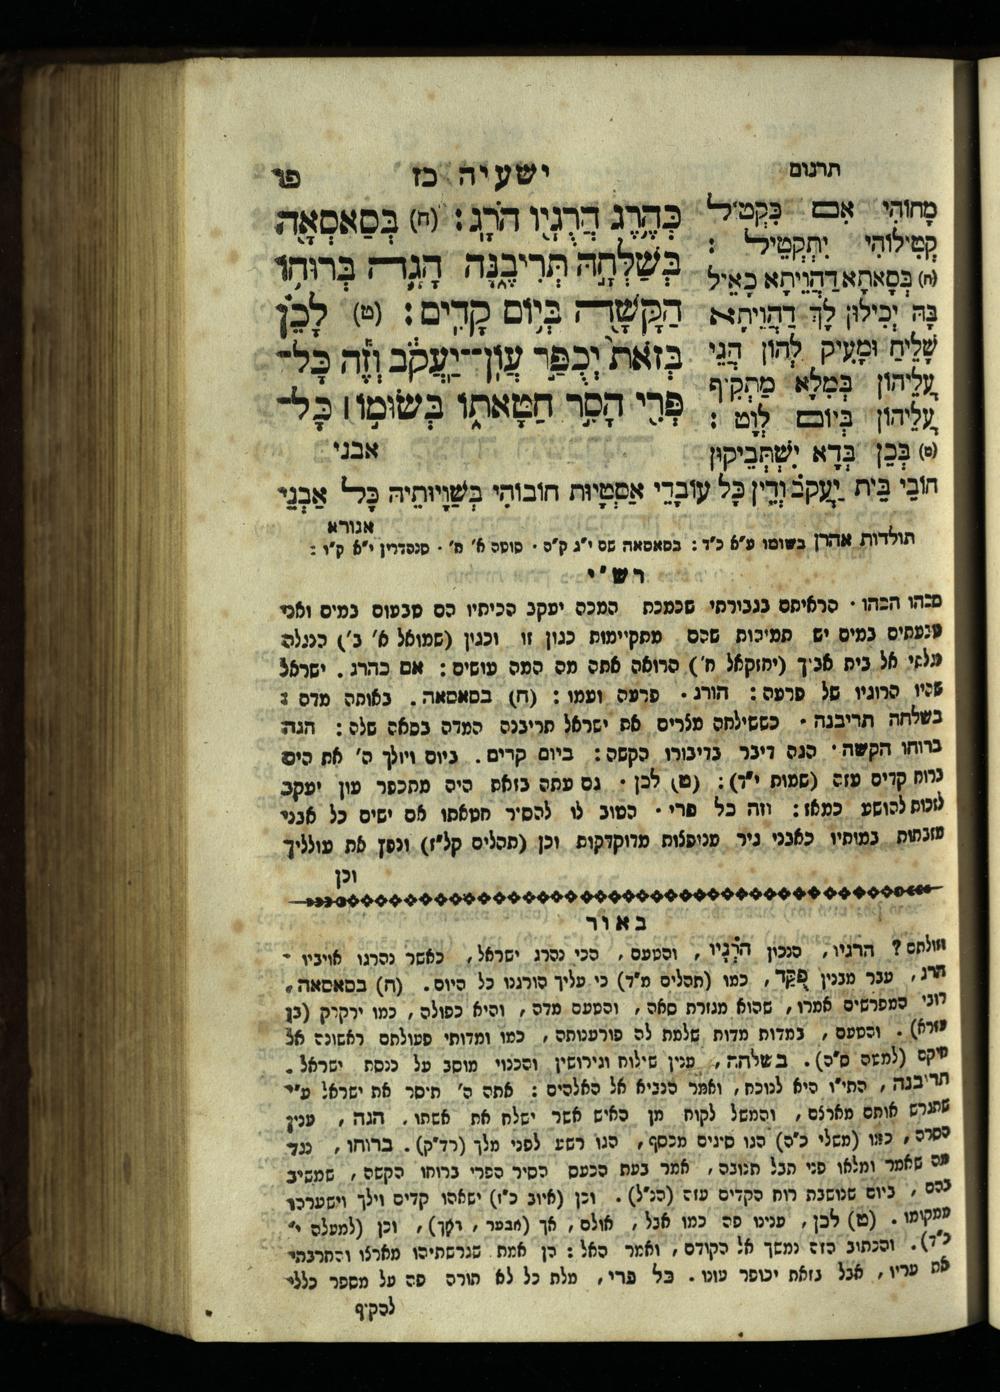 תרגום
ישעיה כז
פו
כְּהֶרֶג הֲרֻגָיו הֹרָג: (ח) בְּסַאסְּאָה
בְּשַׁלְחָהּ תְּרִיבֶנָּה הָגָה בְּרוּחוֹ
הַקָּשָׁה בְּיוֹם קָדִים: (ט) לָכֵן
בְּזֹאת יְכֻפַּר עֲוֹן־יַעֲקֹב וְזֶה כָּל־
פְּרִי הָסִר חַטָּאתוֹ בְּשׂוּמוֹ ׀ כָּל־
אבני
מָחוֹהִי אִם כִּקְטִיל
קְטִילוֹהִי יִתְקְטֵיל :
(ח) בְּסָאתָא דַהֲוֵיתָא כָאֵיל
בָּהּ יְכִילוּן לָךְ דַהֲוֵיתָא
שָׁלִיחַ וּמָעֵיק לְהוֹן הֲגֵי
עֲלֵיהוֹן בְּמִלָא מַתְקִיף
עֲלֵיהוֹן בְּיוֹם לְוָט :
(ט) בְּכֵן בְּדָא יִשְׁתַּבִיקוּן
חוֹבֵי בֵּית יַעֲקֹב וְדֵין כָּל עוֹבָדֵי אַסְטָיוּת חוֹבוֹהִי בְּשַׁוָּיוּתֵיהּ כָּל אַבְנֵי
אגורא
תולדות אהרן בשומו ע״א כ״ד : בסאסאה שם י״ג ק״ס · סוטה א׳ ח׳ · סנהדרין י״א ק״ו :
רש״י
מכהו הכהו · הראיתם בגבורתי שכמכת המכה יעקב הכיתיו הם טבעום במים ואני
טבעתים במים יש תמיהות שהם מתקיימות כגון זו וכגון (שמואל א׳ ב׳) הנגלה
נגלתי אל בית אביך (יחזקאל ח׳) הרואה אתה מה המה עושים : אם כהרג . ישראל
שהיו הרוגיו של פרעה : הורג . פרעה ועמו : (ח) בסאסאה . באותה מדה :
בשלחה תריבנה · כששילחה מצרים את ישראל תריבנה המדה בסאה שלה : הגה
ברוחו הקשה · הגה דיבר בדיבורו הקשה : ביום קדים . ביום ויולך ה׳ את הים
ברוח קדים עזה (שמות י״ד) : (ט) לכן · גם עתה בזאת היה מתכפר עון יעקב
לזכות להושע כמאז : וזה כל פרי · הטוב לו להסיר חטאתו אם ישים כל אבני
מזבחות במותיו כאבני גיר מנופצות מדוקדקות וכן (תהלים קל״ז) ונפץ את עולליך
וכן
באור
זולתם ? הרגיו , הנכון הֹרְגָיו , והטעם , הכי נהרג ישראל , כאשר נהרגו אויביו ־
הרג , עבר מבנין פֻּקַד , כמו (תהלים מ״ד) כי עליך הורגנו כל היום . (ח) בסאסאה ,
רובי המפרשים אמרו , שהוא מגזרת סאה , והטעם מדה , והיא כפולה , כמו ירקרק (בן
עזרא) . והטעם , במדות מדות שלמת לה פורענותה , כמו ומדותי פעולתם ראשונה אל
חיקם (למטה ס״ה) . בשלחה , ענין שילוח וגירושין והכנוי מוסב על כנסת ישראל .
תריבנה , התי״ו היא לנוכח , ואמר הנביא אל האלהים : אתה ה׳ תיסר את ישראל ע״י
שתגרש אותם מארצם , והמשל לקוח מן האיש אשר ישלח את אשתו . הגה , ענין
הסרה , כמו (משלי כ״ה) הגו סיגים מכסף , הגו רשע לפני מלך (רד״ק) . ברוחו , נגד
מה שאמר ומלאו פני תבל תנובה , אמר בעת הכעס הסיר הפרי ברוחו הקשה , שמשיב
בהם , ביום שנושבת רוח הקדים עזה (הנ״ל) . וכן (איוב כ״ז) ישאהו קדים וילך וישערהו
ממקומו . (ט) לכן , ענינו פה כמו אבל , אולם , אך (אבער , יעך) , וכן (למעלה י׳
כ״ד) . והכתוב הזה נמשך אל הקודם , ואמר האל : הן אמת שגרשתיהו מארצו והחרבתי
את עריו , אבל בזאת יכופר עונו . כל פרי , מלת כל לא תורה פה על מספר כללי
להקיף